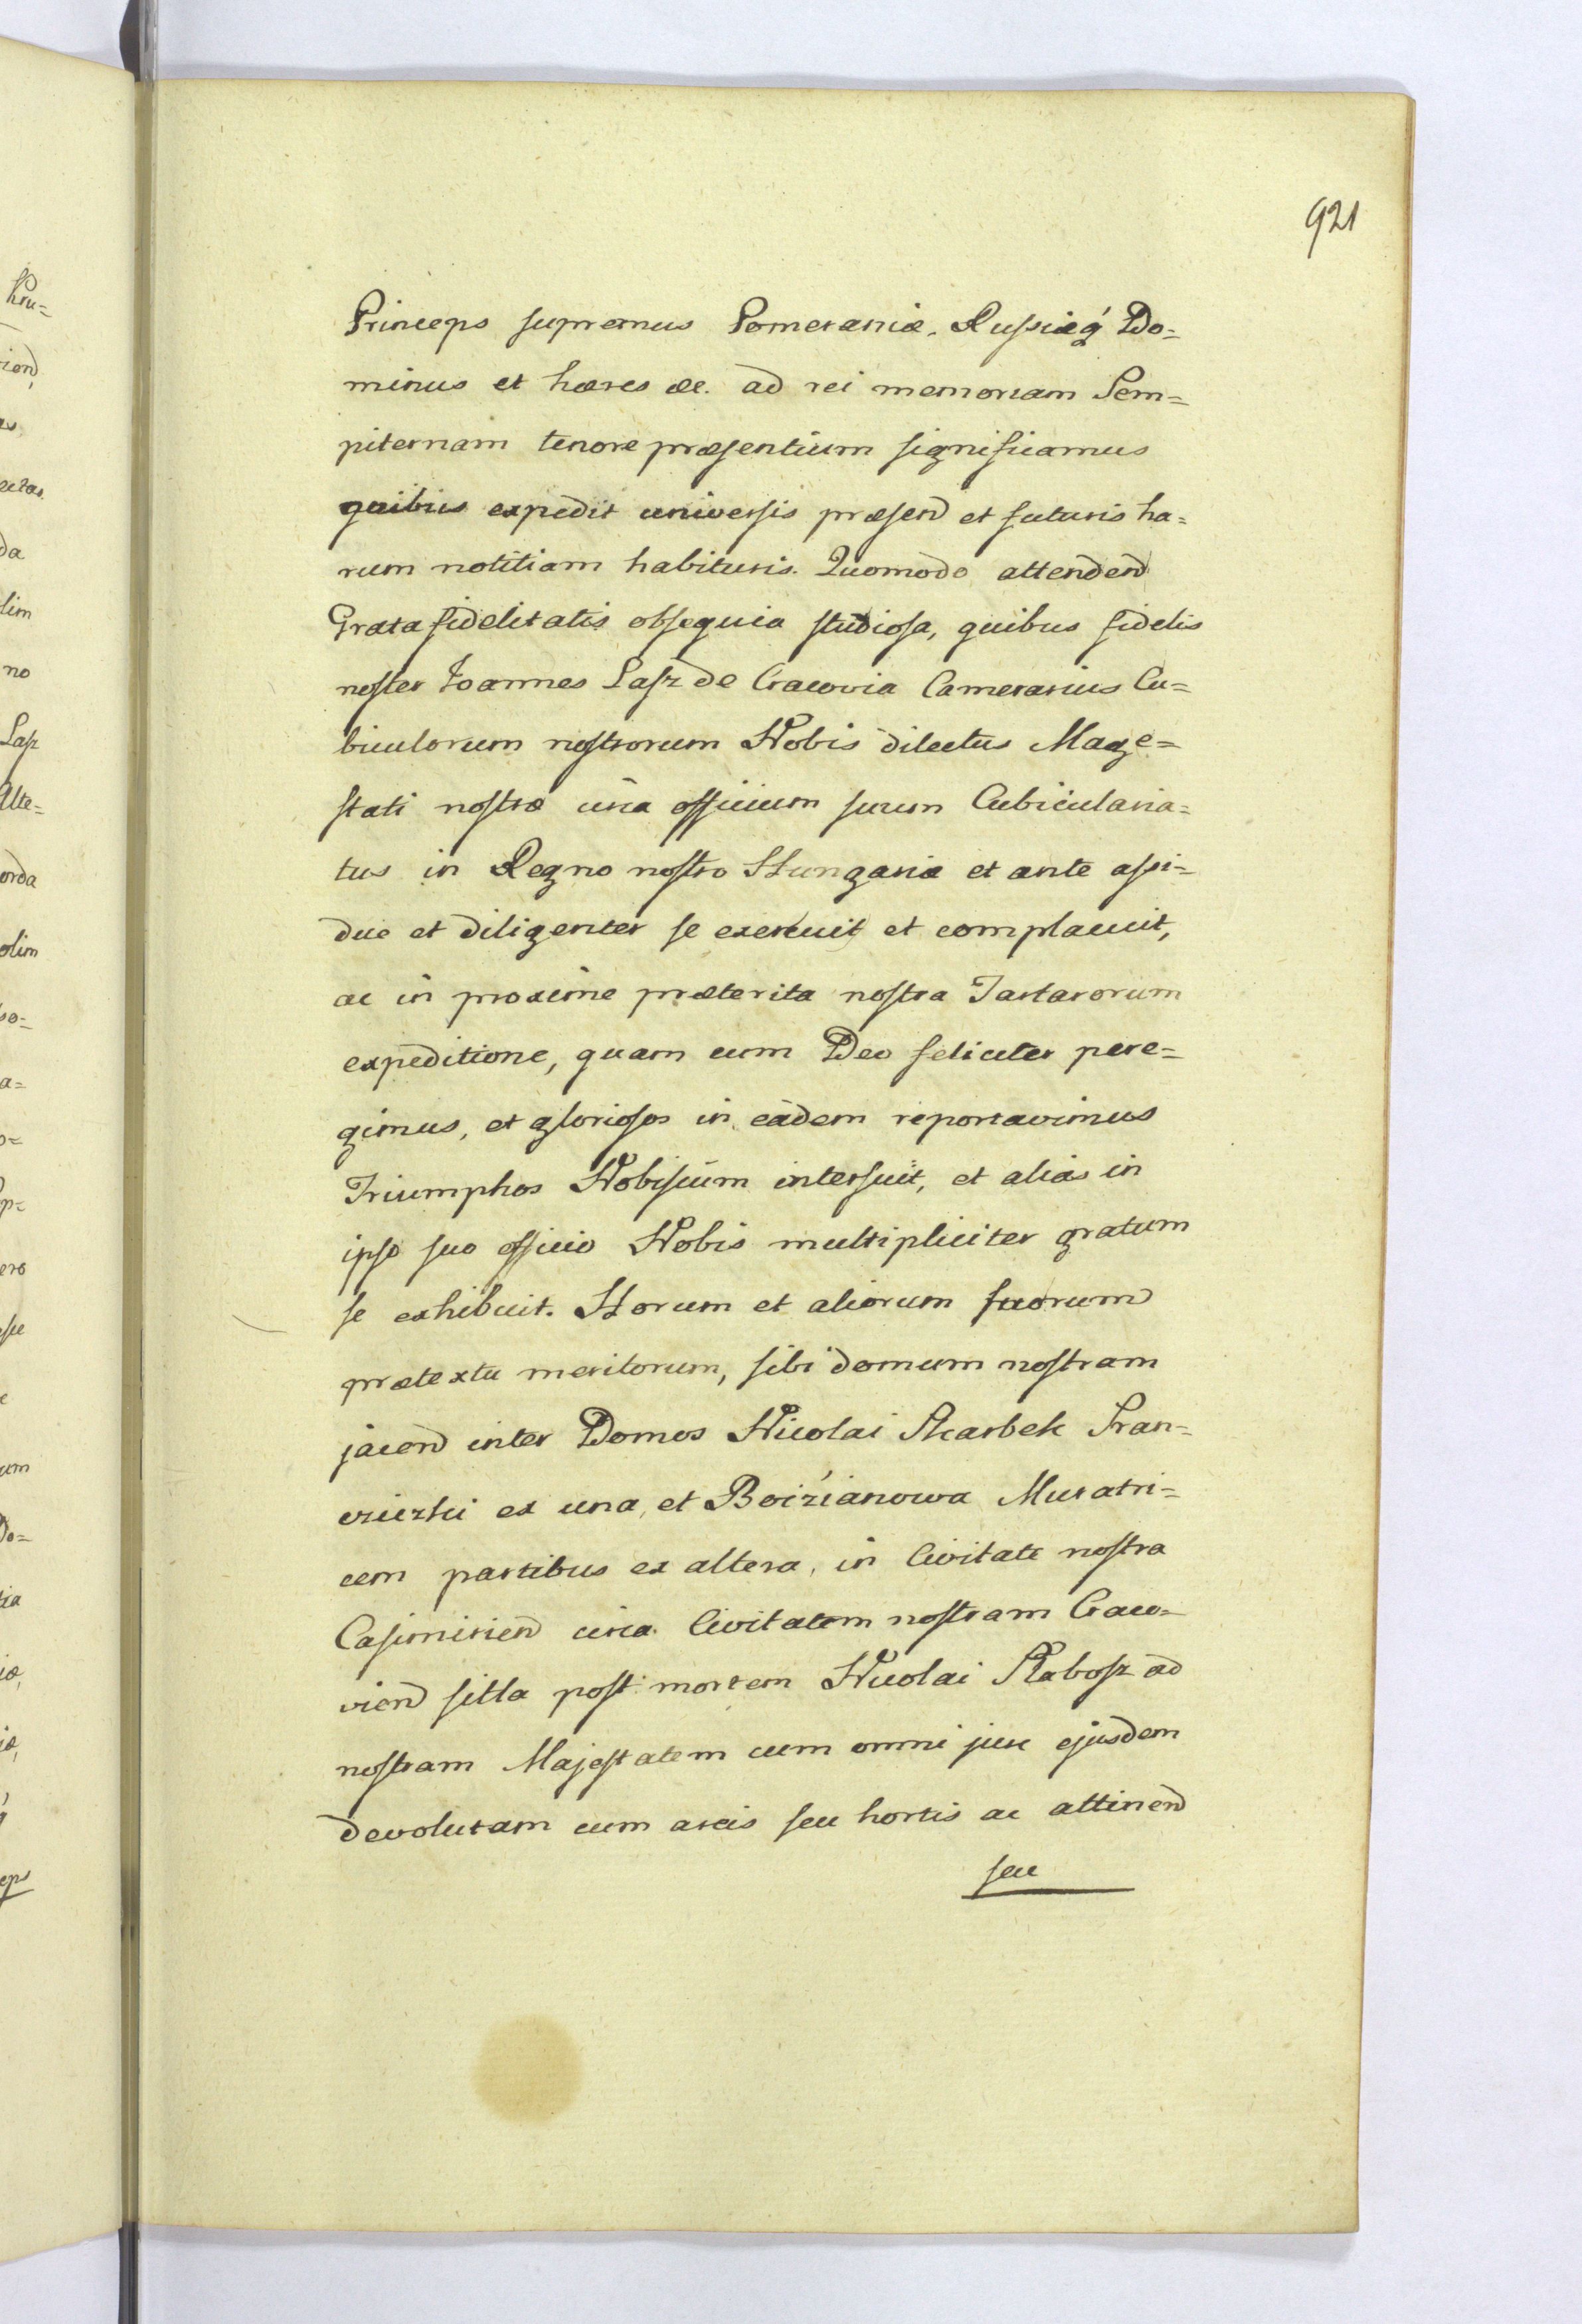 921
Princeps supremus Pomeraniæ, Russiæq́ Do=
minus et hæres &c. ad rei memoriam Sem=
piternam tenore præsentium significamus
quibus expedit universis præsend et futuris ha=
rum notitiam habituris. Quomodo attendend
Grata fidelitatis obsequia studiosa, quibus fidelis
noster Joannes Lasz de Cracovia Camerarius Cu=
biculorum nostrorum Nobis dilectus Mage=
stati nostræ circa officium suum Cubicularia=
tus in Regno nostro Hungariæ et ante assi=
due et diligenter se exercuit et complacuit,
ac in proxime præterita nostra Tartarorum
expeditione, quam cum Deo feliciter pere=
gimus, et gloriosos in eadem reportavimus
Triumphos Nobiscum interfuit, et alias in
ipso suo officio Nobis multipliciter gratum
se exhibuit. Horum et aliorum suorum
prætextu meritorum, sibi domum nostram
jacend inter Domos Nicolai Skarbek Fran=
czierki ex una, et Boiźianowa Muratri=
cem partibus ex altera, in Civitate nostra
Casimiriend circa Civitatem nostram Craco=
viend sitta post mortem Nicolai Rabosz ad
nostram Majestatem cum omni jure ejusdem
devolutam cum areis seu hortis ac attinend
seu